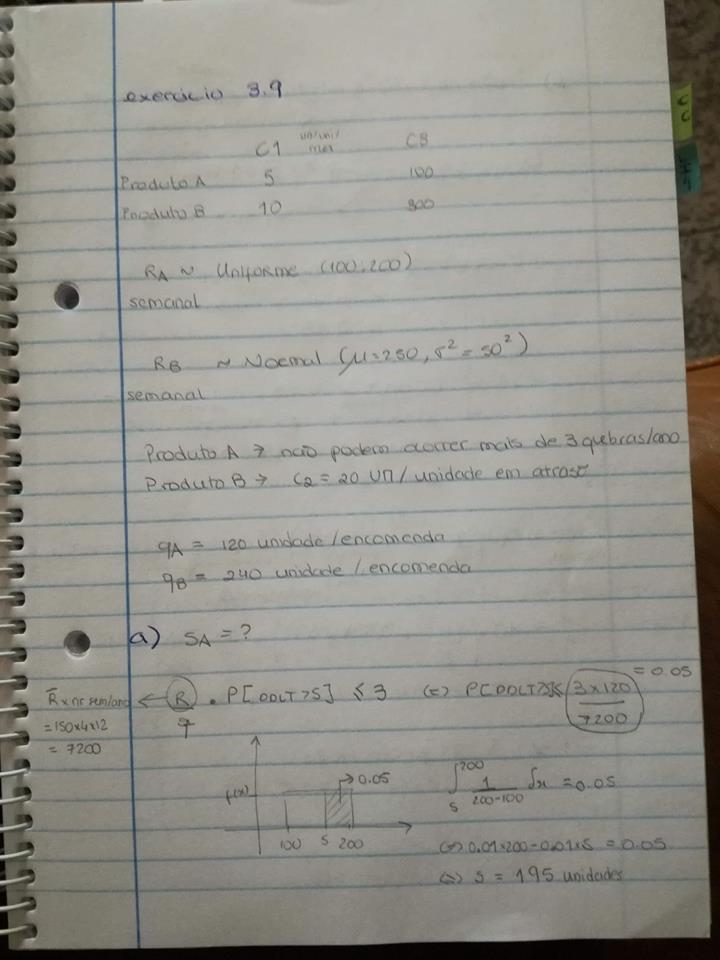 exercício 3.9
C1 un/uni/mês C3
Produto A 5 100
Produto B 10 300
RA ~ Uniforme (100,200)
semanal
RB ~ Normal (μ=250, σ² = 50²)
semanal
Produto A → não podem ocorrer mais de 3 quebras/ano
Produto B → C2 = 20 UM / unidade em atraso
qA = 120 unidade / encomenda
qB = 240 unidade / encomenda
a) SA = ?
R̄ x nr sem/ano ← R/q . P[DDLT>S] ≤ 3 (=) P[DDLT>S]≤ 3x120/7200 = 0.05
= 150x4x12
= 7200
f(x) → 0.05
100 S 200
∫ₛ²⁰⁰ 1/200-100 dx = 0.05
(=) 0.01x200 - 0.01xS = 0.05
(=) S = 195 unidades